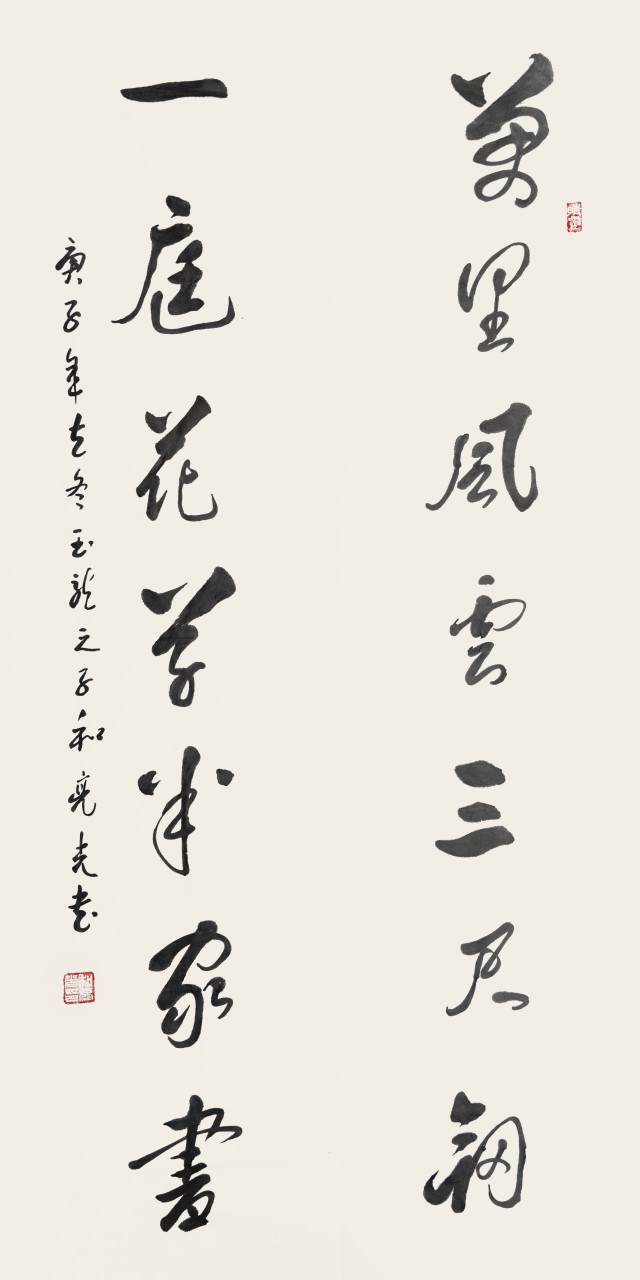 萬里風雲三尺劒
一庭花草半床書
庚子年之冬玉龍之子和亮光書